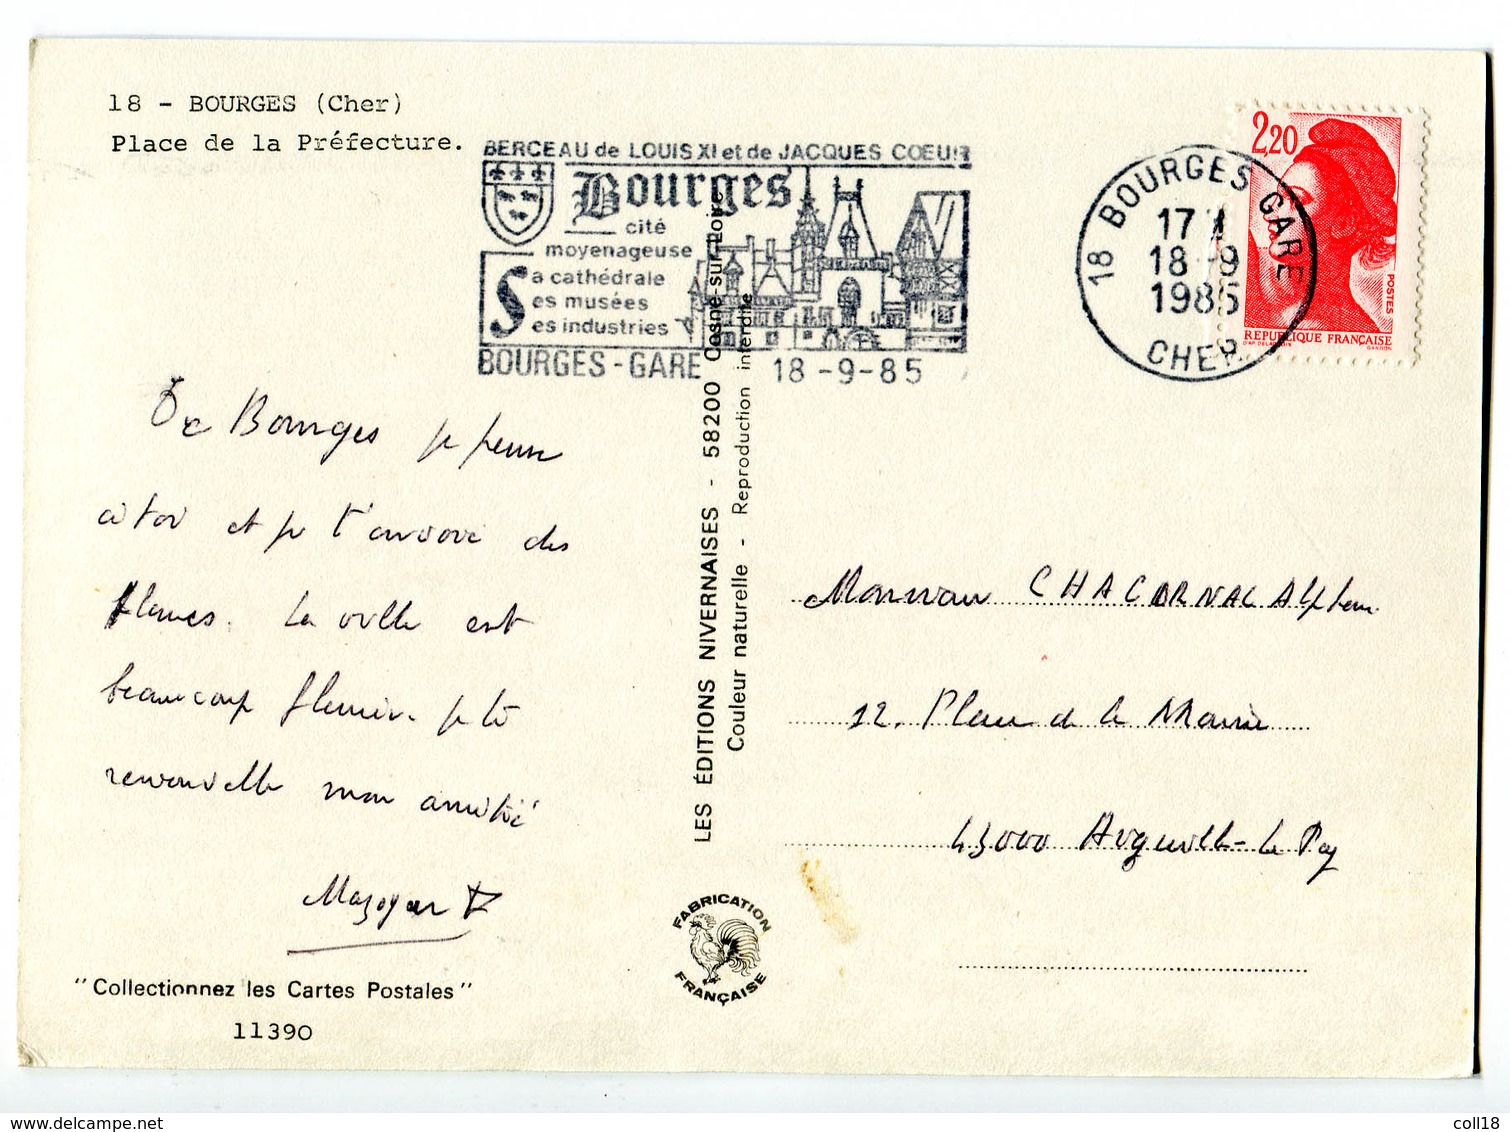 18 - BOURGES (Cher)
Place de la Préfecture.
BERCEAU de LOUIS XI et de JACQUES COEUR
Bourges
cité
moyenageuse
Sa cathédrale
Ses musées
Ses industries
BOURGES-GARE 18-9-85
18 BOURGES GARE
17
18-9
1985
CHER
2,20
POSTES
REPUBLIQUE FRANÇAISE
De Bourges je pense
à toi et je t'envoie des
fleurs. La ville est
beaucoup fleurie. je te
renouvelle mon amitié
Mazoyer
LES ÉDITIONS NIVERNAISES - 58200 Cosne-sur-Loire
Couleur naturelle - Reproduction interdite
Monsieur CHACORNAC Alphonse
12. Place de la Mairie
43000 Aiguilhe-Le Puy
FABRICATION
FRANÇAISE
"Collectionnez les Cartes Postales"
11390
www.delcampe.net
coll18